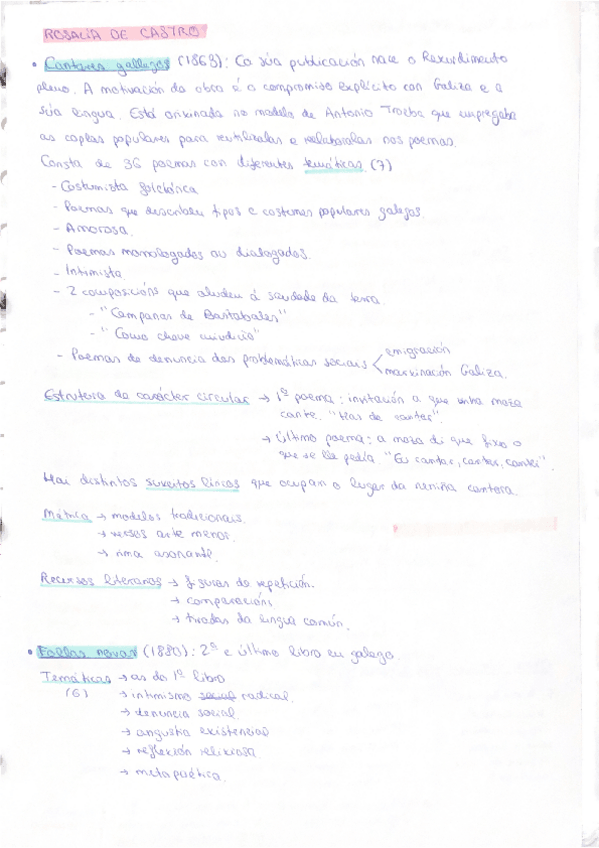 ROSALÍA DE CASTRO
• Cantares gallegos (1863): Co súa publicación nace o Rexurdimento
pleno. A motivación da obra é o compromiso explícito con Galiza e a
súa lingua. Está orixinada no modelo de Antonio Trueba que empregaba
as coplas populares para reutilizalas e reelaboralas nos poemas.
Consta de 36 poemas con diferentes temáticas. (7)
- Costumista folclórica
- Poemas que describen tipos e costumes populares galegos.
- Amorosa.
- Poemas monologados ou dialogados.
- Intimista.
- 2 composicións que aluden á saudade da terra.
- "Campanas de Bastabales"
- "Como chove miudiño"
- Poemas de denuncia das problemáticas sociais < emigración
marxinación Galiza.
Estrutura de carácter circular → 1º poema: invitación a que unha moza
cante. "Has de cantar".
→ último poema: a moza di que fixo o
que se lle pedía. "Eu cantar, cantar, cantei".
Hai distintos suxeitos líricos que ocupan o lugar da meniña cantora.
Métrica → modelos tradicionais.
→ versos arte menor.
→ rima asonante.
Recursos literarios → figuras de repetición.
→ comparacións.
→ tiradas da lingua común.
• Follas novas (1880): 2º e último libro en galego.
Temáticas → as do 1º libro
(6) → intimismo social radical.
→ denuncia social.
→ angustia existencial
→ reflexión relixiosa.
→ metapoética.